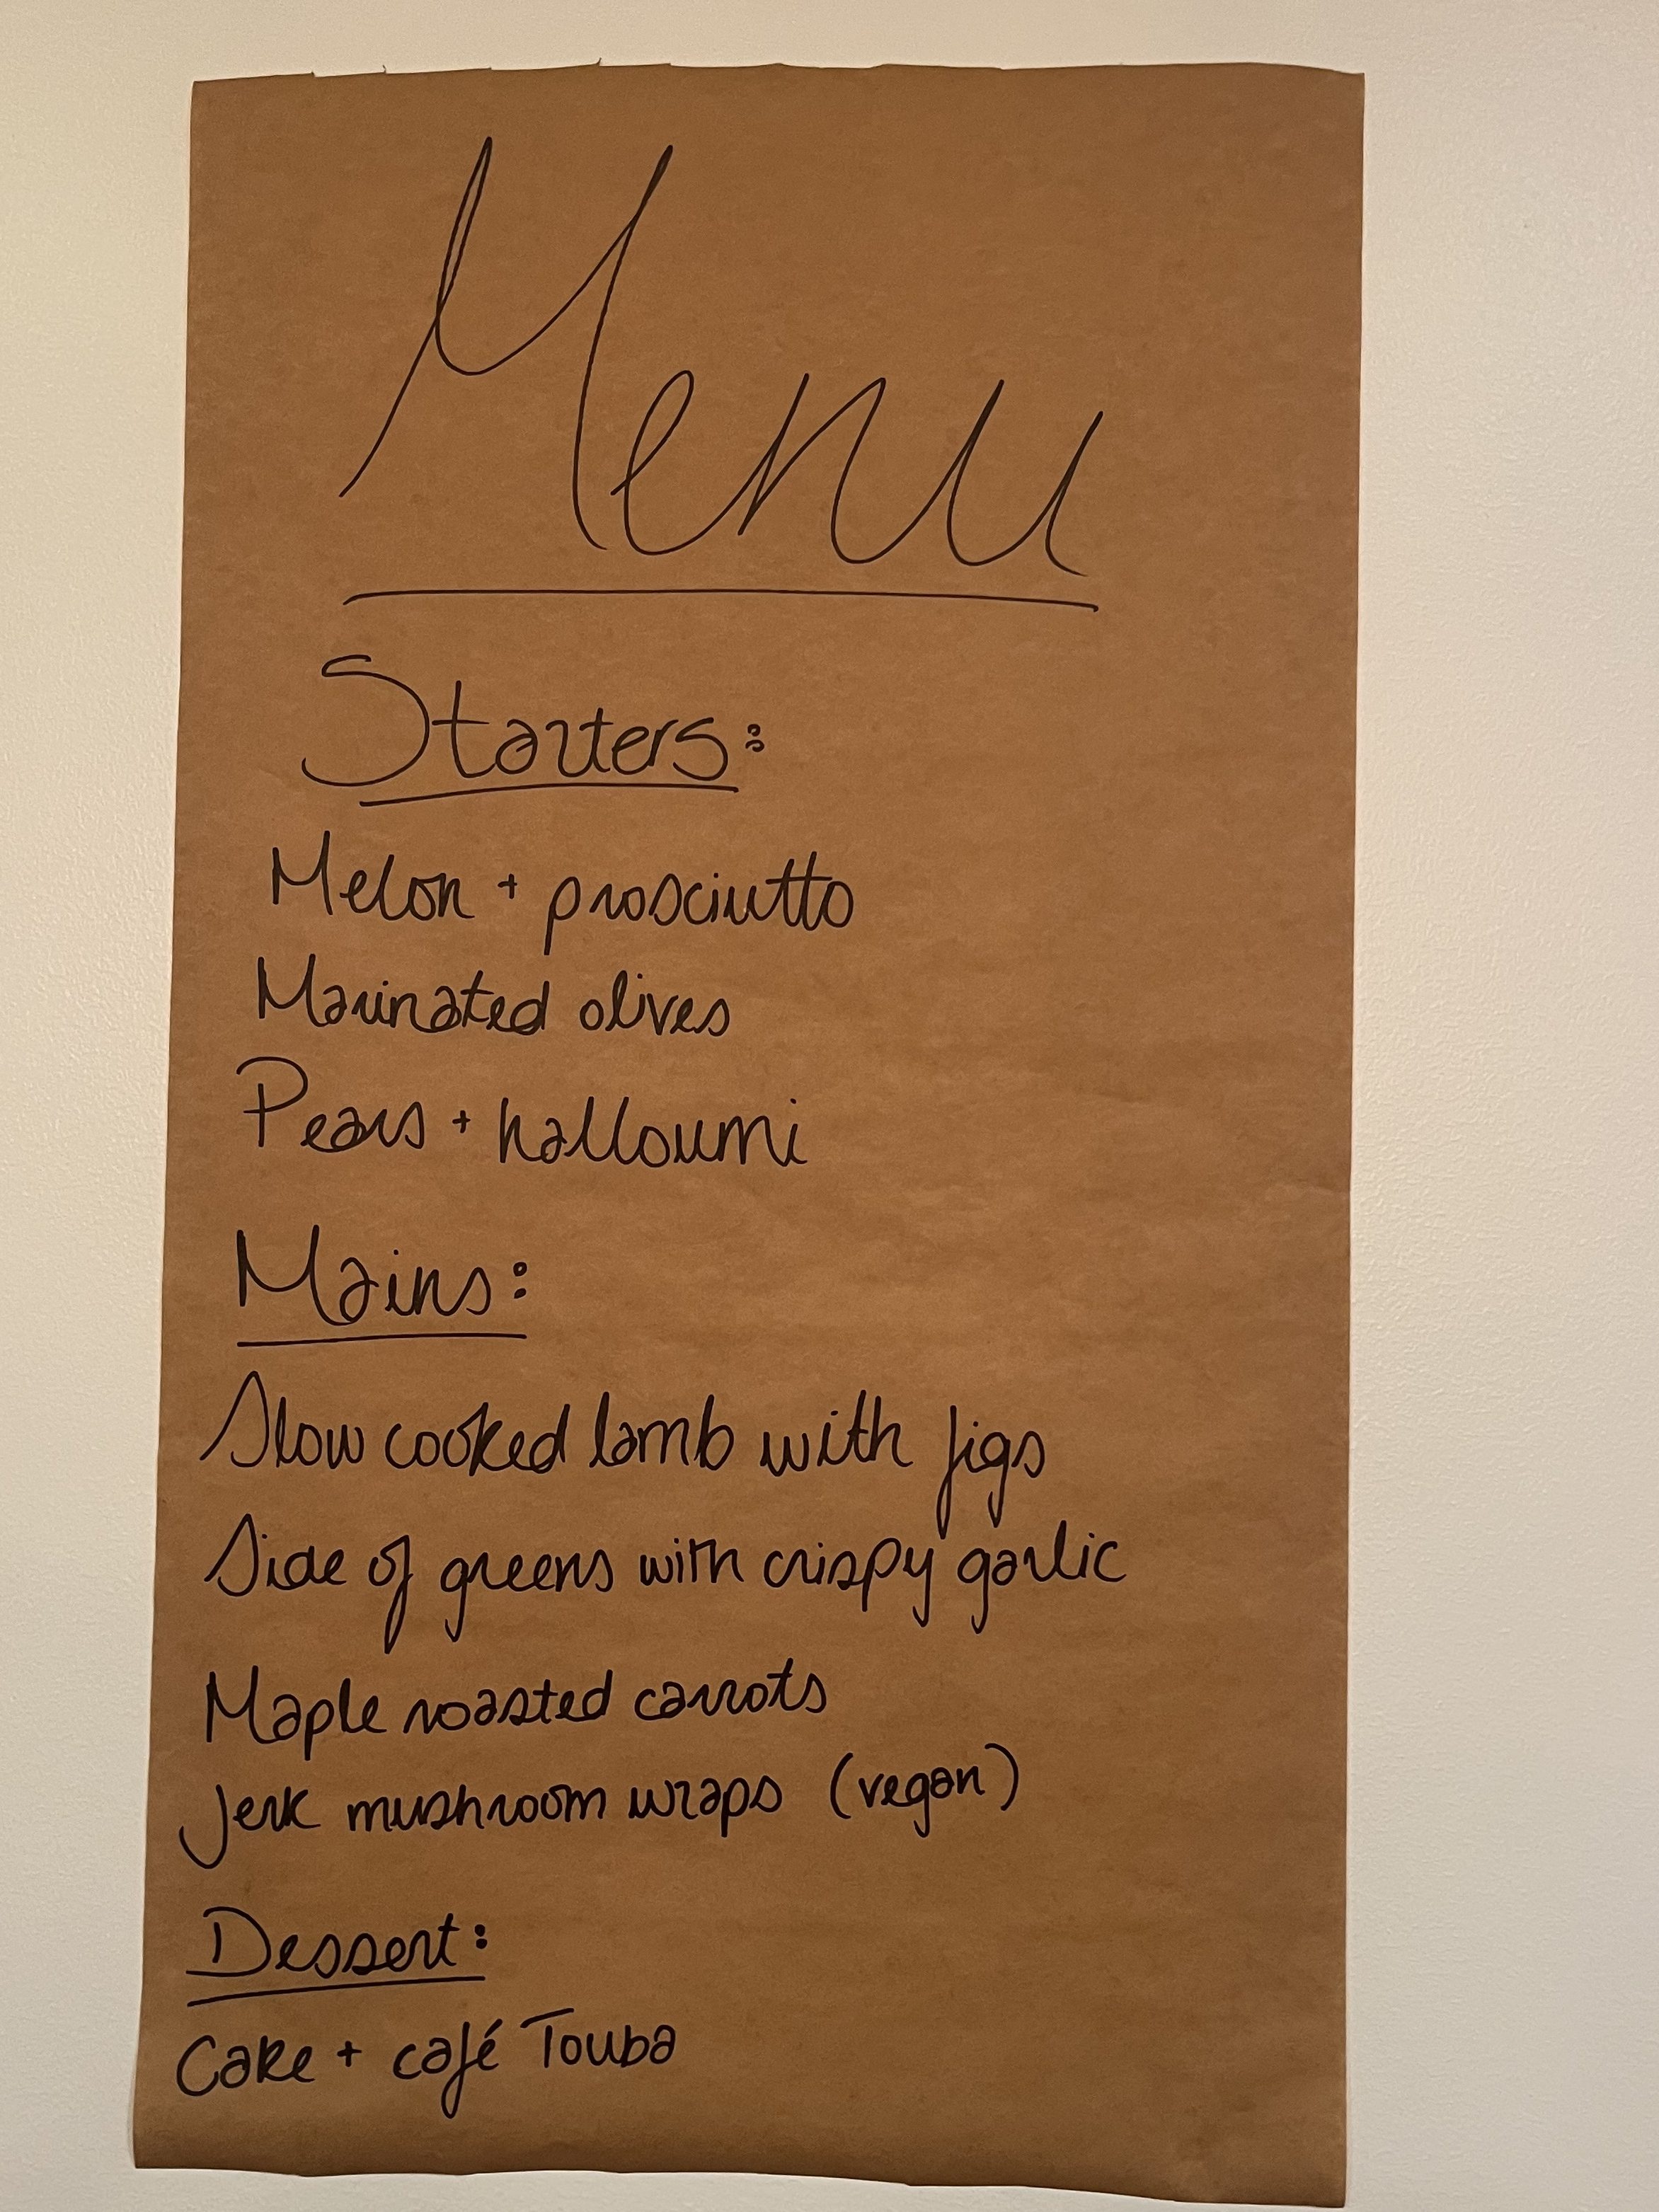 Menu
Starters:
Melon + prosciutto
Marinated olives
Pears + halloumi
Mains:
Slow cooked lamb with figs
Side of greens with crispy garlic
Maple roasted carrots
Jerk mushroom wraps (vegan)
Dessert:
Cake + café Touba